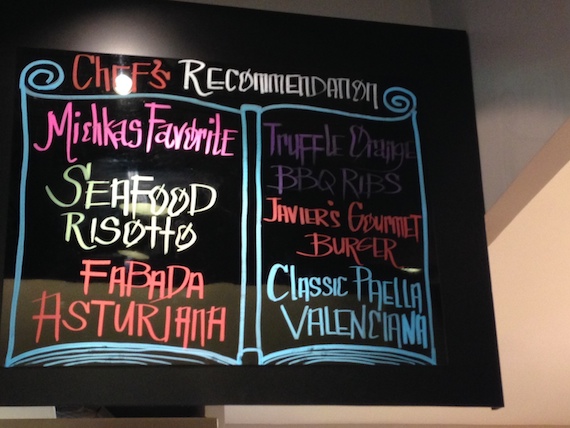 Chef's Recommendation
Michkas Favorite
Seafood
Risotto
Fabada
Asturiana
Truffle Orange
BBQ Ribs
Javier's Gourmet
Burger
Classic Paella
Valenciana